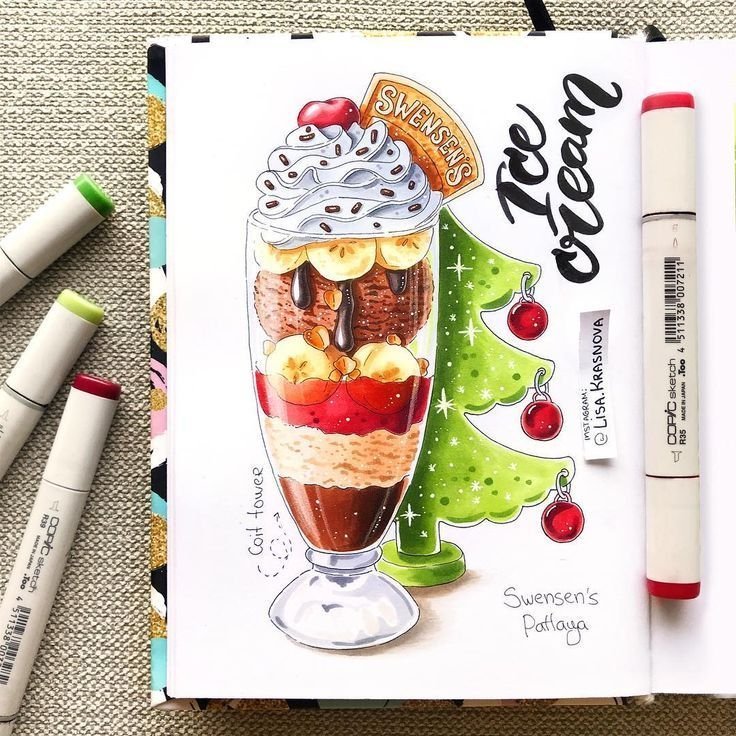 SWENSEN'S
Ice
cream
INSTAGRAM:
@LISA.KRASNOVA
Coit tower
Swensen's
Pattaya
COPIC sketch
MADE IN JAPAN .Too
R35
4 511338 007211
COPIC sketch
MADE IN JAPAN .Too
R39
4 511338 007